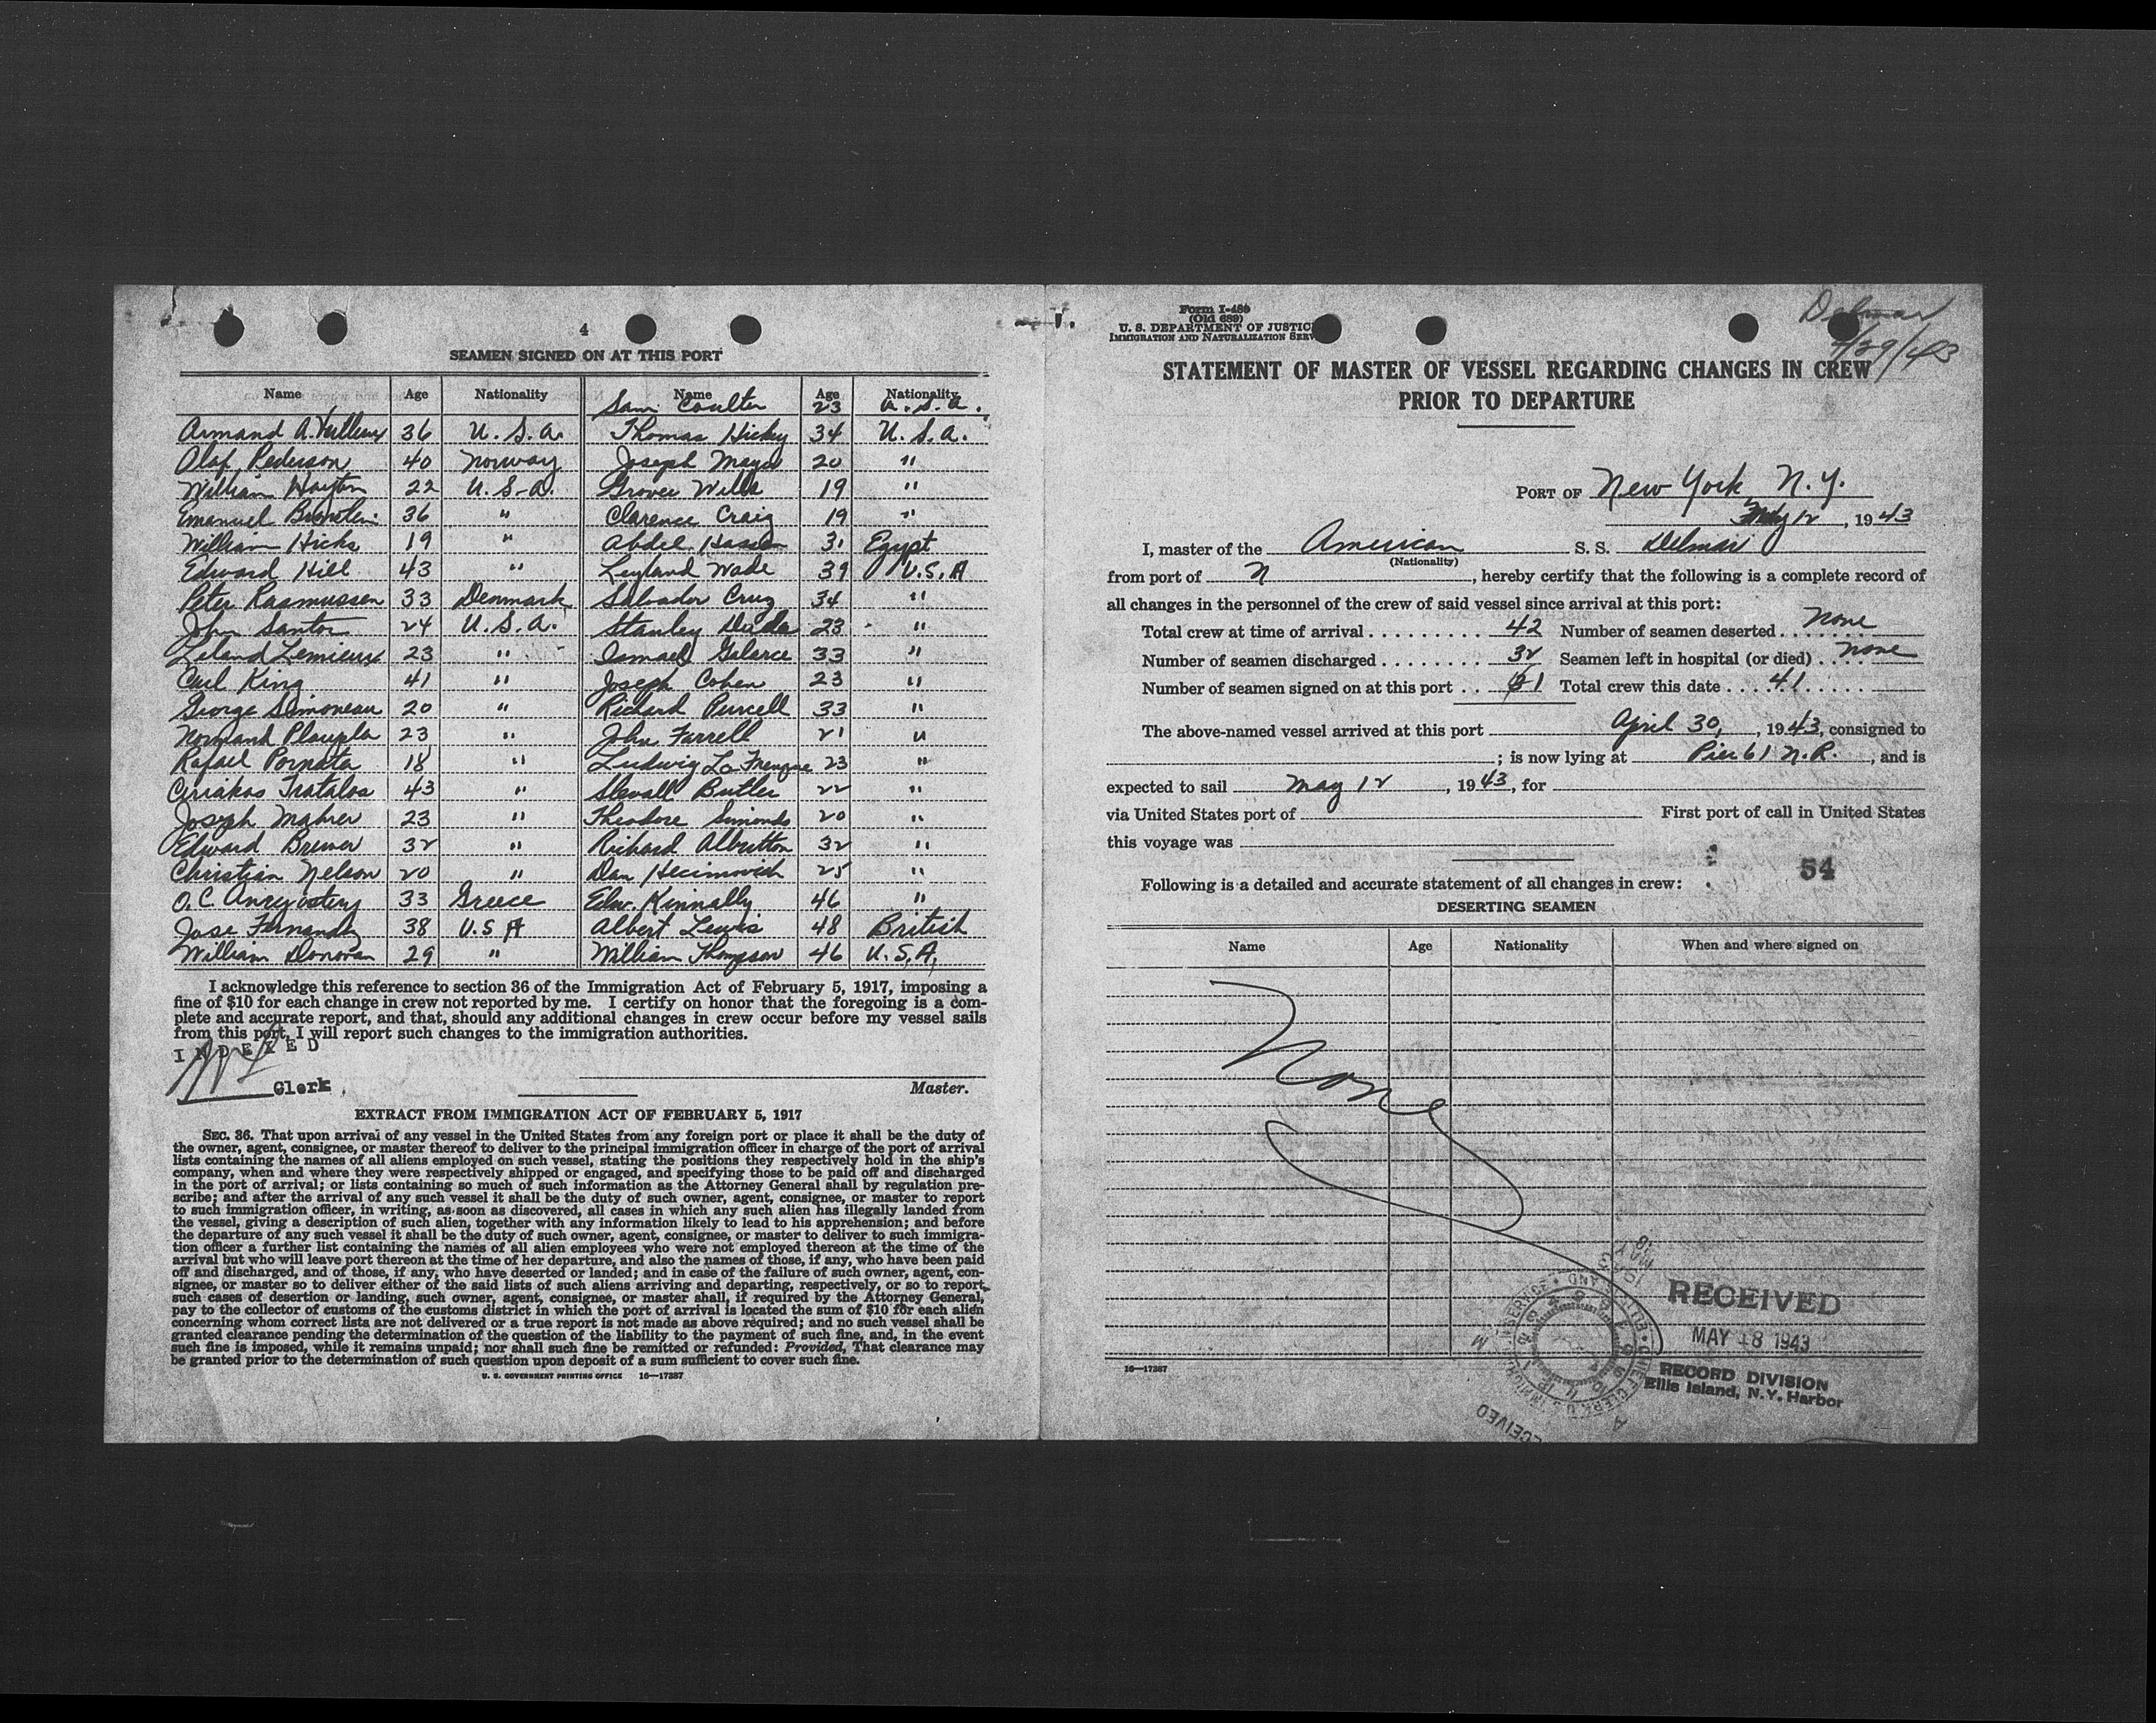 4
SEAMEN SIGNED ON AT THIS PORT
Name Age Nationality Name Age Nationality
Sam Coulter 23 U.S.A.
Armand A. 36 U.S.A. Thomas Hicky 34 U.S.A.
Olaf Pederson 40 Norway Joseph 20 "
William 22 U.S.A. Grover Wells 19 "
Emanuel 36 " Clarence Craig 19 "
William Hicks 19 " Abdel Hassen 31 Egypt
Edward Hill 43 " Leyland Wade 39 U.S.A
Peter Rasmussen 33 Denmark Salvador Cruz 34 "
John Santos 24 U.S.A. Stanley Duda 23 "
Leland Lemieux 23 " Ismael Galarce 33 "
Carl King 41 " Joseph Cohen 23 "
George Simoneau 20 " Richard Purcell 33 "
Normand 23 " John Farrell 21 "
Rafael 18 " Ludwig 23 "
Ciriakos Tratalos 43 " Butler 22 "
Joseph Mahrer 23 " Theodore Simonds 20 "
Edward Brewer 32 " Richard Albritton 32 "
Christian Nelson 20 " Dan Hecimovich 25 "
O.C. 33 Greece Edw. Kinnally 46 "
Jose Fernandez 38 U.S A Albert Lewis 48 British
William Donovan 29 " William Thompson 46 U.S.A.
I acknowledge this reference to section 36 of the Immigration Act of February 5, 1917, imposing a
fine of $10 for each change in crew not reported by me. I certify on honor that the foregoing is a com-
plete and accurate report, and that, should any additional changes in crew occur before my vessel sails
from this port, I will report such changes to the immigration authorities.
INDEXED
Clerk
Master.
EXTRACT FROM IMMIGRATION ACT OF FEBRUARY 5, 1917
SEC. 36. That upon arrival of any vessel in the United States from any foreign port or place it shall be the duty of
the owner, agent, consignee, or master thereof to deliver to the principal immigration officer in charge of the port of arrival
lists containing the names of all aliens employed on such vessel, stating the positions they respectively hold in the ship's
company, when and where they were respectively shipped or engaged, and specifying those to be paid off and discharged
in the port of arrival; or lists containing so much of such information as the Attorney General shall by regulation pre-
scribe; and after the arrival of any such vessel it shall be the duty of such owner, agent, consignee, or master to report
to such immigration officer, in writing, as soon as discovered, all cases in which any such alien has illegally landed from
the vessel, giving a description of such alien, together with any information likely to lead to his apprehension; and before
the departure of any such vessel it shall be the duty of such owner, agent, consignee, or master to deliver to such immigra-
tion officer a further list containing the names of all alien employees who were not employed thereon at the time of the
arrival but who will leave port thereon at the time of her departure, and also the names of those, if any, who have been paid
off and discharged, and of those, if any, who have deserted or landed; and in case of the failure of such owner, agent, con-
signee, or master so to deliver either of the said lists of such aliens arriving and departing, respectively, or so to report
such cases of desertion or landing, such owner, agent, consignee, or master shall, if required by the Attorney General,
pay to the collector of customs of the customs district in which the port of arrival is located the sum of $10 for each alien
concerning whom correct lists are not delivered or a true report is not made as above required; and no such vessel shall be
granted clearance pending the determination of the question of the liability to the payment of such fine, and, in the event
such fine is imposed, while it remains unpaid; nor shall such fine be remitted or refunded: Provided, That clearance may
be granted prior to the determination of such question upon deposit of a sum sufficient to cover such fine.
U. S. GOVERNMENT PRINTING OFFICE 16—17287
Form I-489
(Old 689)
U. S. DEPARTMENT OF JUSTIC
IMMIGRATION AND NATURALIZATION SERV
Delmar
4/29/43
STATEMENT OF MASTER OF VESSEL REGARDING CHANGES IN CREW
PRIOR TO DEPARTURE
PORT OF New York N.Y.
May 12, 1943
I, master of the American S. S. Delmar
(Nationality)
from port of N, hereby certify that the following is a complete record of
all changes in the personnel of the crew of said vessel since arrival at this port:
Total crew at time of arrival 42 Number of seamen deserted None
Number of seamen discharged 32 Seamen left in hospital (or died) None
Number of seamen signed on at this port 31 Total crew this date 41
The above-named vessel arrived at this port April 30, 1943, consigned to
; is now lying at Pier 61 N.R., and is
expected to sail May 12, 1943, for
via United States port of First port of call in United States
this voyage was
54
Following is a detailed and accurate statement of all changes in crew:
DESERTING SEAMEN
Name Age Nationality When and where signed on
None
RECEIVED
MAY 18 1943
RECORD DIVISION
Ellis Island, N.Y. Harbor
16—17287